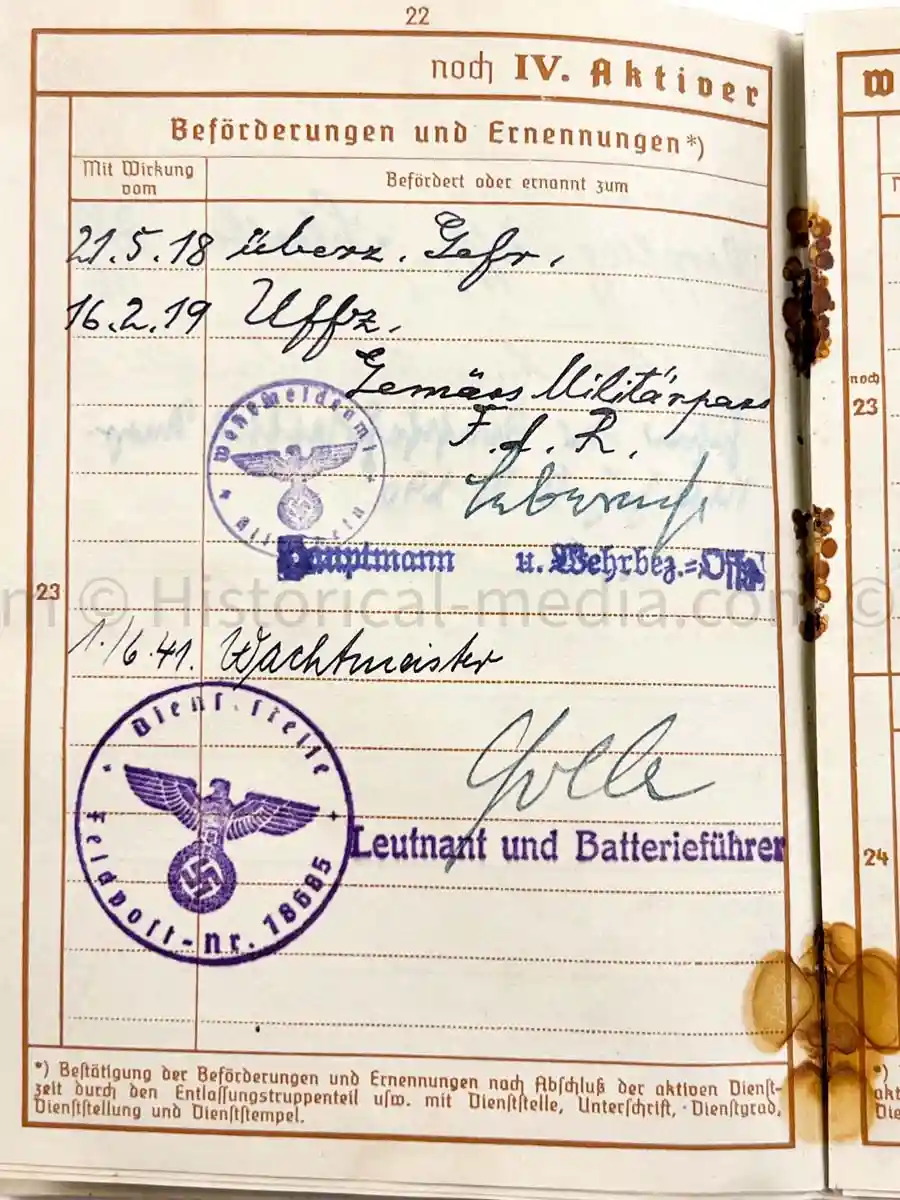 22
noch IV. Aktiver
W
Beförderungen und Ernennungen*)
Mit Wirkung vom
Befördert oder ernannt zum
21.5.18 überz. Gefr.
16.2.19 Uffz.
Gemäss Militärpass
F. d. R.
Wehrmeldeamt
Hauptmann u. Wehrbez.=Offz.
noch
23
23
m © Historical-media.com ©
1./6.41. Wachtmeister
Dienststelle
Feldpost-Nr. 18685
Leutnant und Batterieführer
24
*) Bestätigung der Beförderungen und Ernennungen nach Abschluß der aktiven Dienst-
zeit durch den Entlassungstruppenteil usw. mit Dienststelle, Unterschrift, Dienstgrad,
Dienststellung und Dienststempel.
*)
akt
Die